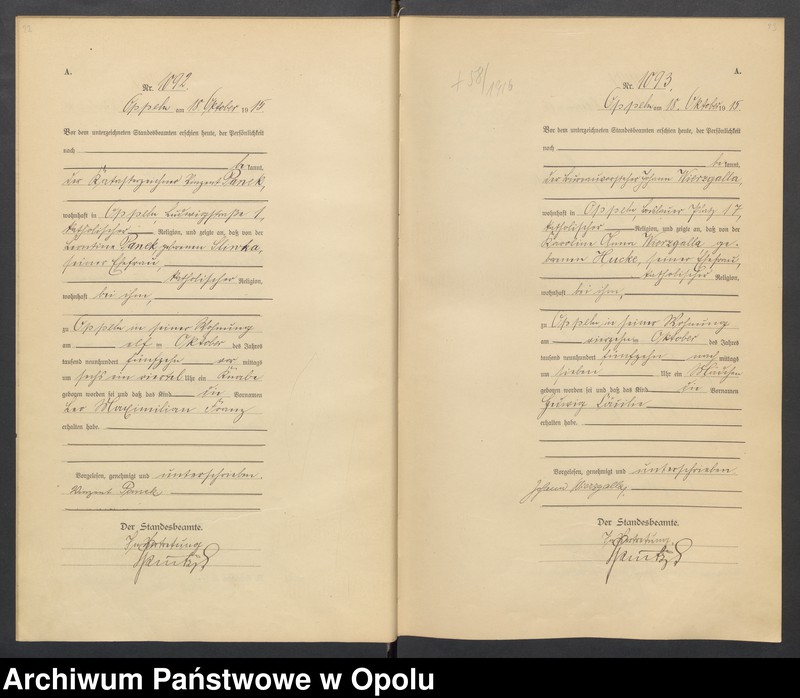 A.
Nr. 1092.
Oppeln am 18. Oktober 1915
Vor dem unterzeichneten Standesbeamten erschien heute, der Persönlichkeit
nach
be kannt,
der Katasterzeichner Vinzent Panek,
wohnhaft in Oppeln, Ludwigstraße 1,
katholischer Religion, und zeigte an, daß von der
Leontine Panek geborenen Slinka,
seiner Ehefrau,
katholischer Religion,
wohnhaft bei ihm,
zu Oppeln in seiner Wohnung
am elf ten Oktober des Jahres
tausend neunhundert fünfzehn vor mittags
um sechs ein viertel Uhr ein Knabe
geboren worden sei und daß das Kind die Vornamen
Leo Maximilian Franz
erhalten habe.
Vorgelesen, genehmigt und unterschrieben.
Vinzent Panek
Der Standesbeamte.
In Vertretung.
A.
+58/1916
Nr. 1093.
Oppeln am 18. Oktober 1915.
Vor dem unterzeichneten Standesbeamten erschien heute, der Persönlichkeit
nach
be kannt,
der Bureauvorsteher Johann Wierzgalla,
wohnhaft in Oppeln, Breslauer Platz 17,
katholischer Religion, und zeigte an, daß von der
Karoline Anna Wierzgalla ge-
borenen Hucke, seiner Ehefrau,
katholischer Religion,
wohnhaft bei ihm,
zu Oppeln in seiner Wohnung
am vierzehn ten Oktober des Jahres
tausend neunhundert fünfzehn nach mittags
um sieben Uhr ein Mädchen
geboren worden sei und daß das Kind die Vornamen
Hedwig Cäcilie
erhalten habe.
Vorgelesen, genehmigt und unterschrieben.
Johann Wierzgalla.
Der Standesbeamte.
In Vertretung.
Archiwum Państwowe w Opolu